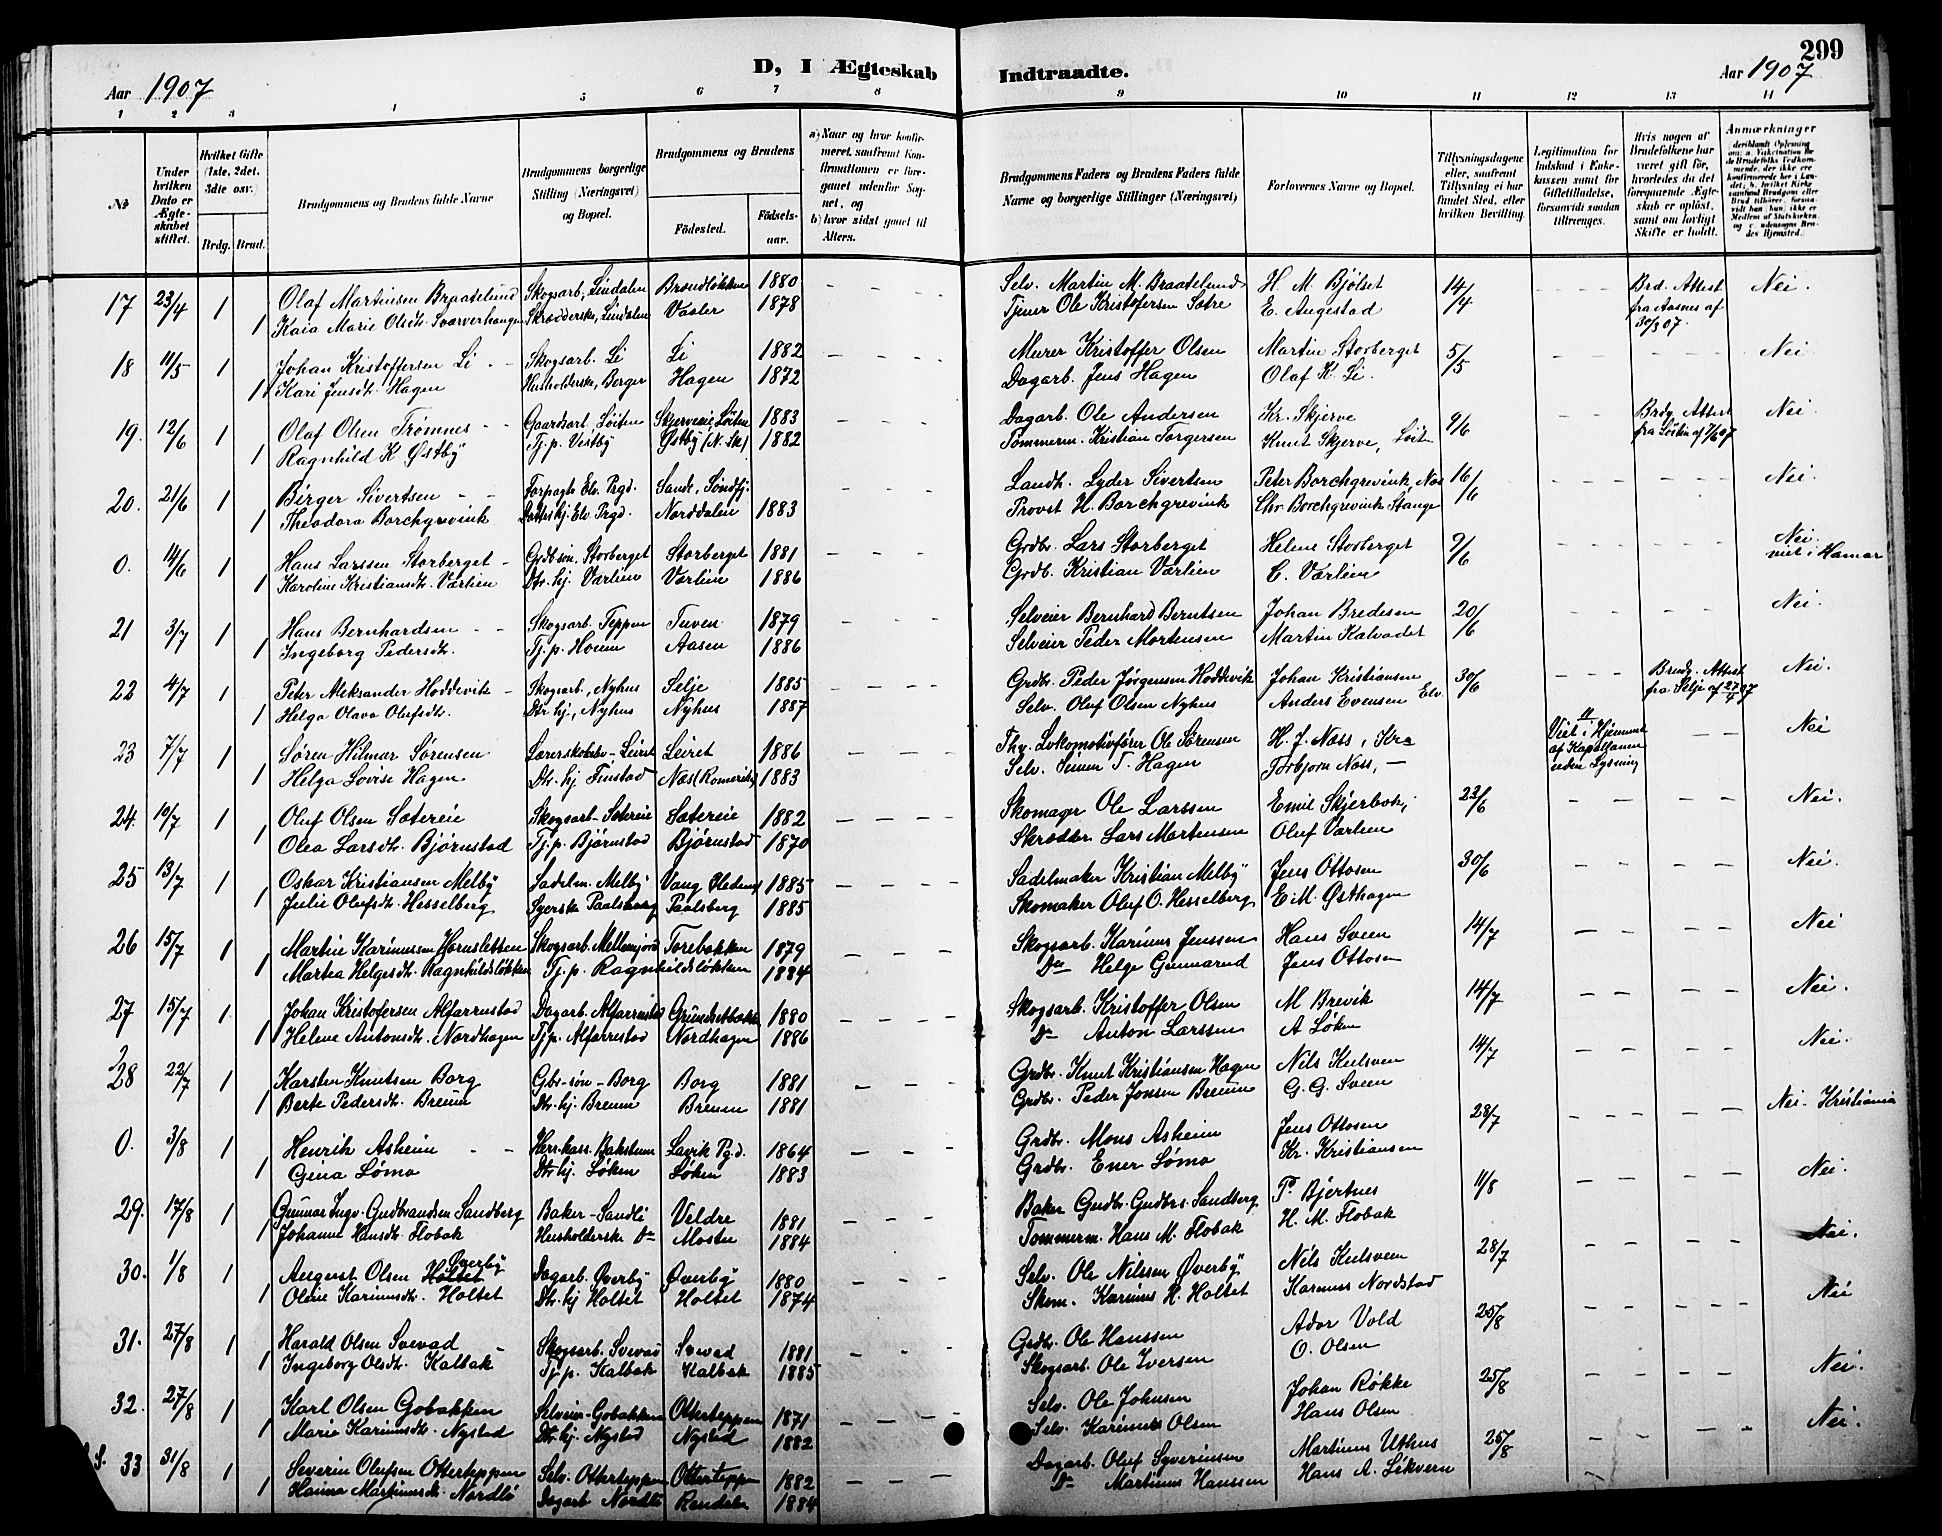 299
Aar 1907
D, I Ægteskab
Indtraadte.
Aar 1907
1 2 3 4 5 6 7 8 9 10 11 12 13 14
No
Under hvilken Dato er Ægteskabet stiftet.
Hvilket Gifte (1ste, 2det, 3die osv.)
Brdg. Brud.
Brudgommens og Brudens fulde Navne
Brudgommens borgerlige Stilling (Næringsvei) og Bopæl.
Brudgommens og Brudens
Fødested.
Fødselsaar.
a) Naar og hvor konfirmeret, saafremt Konfirmationen er foregaaet udenfor Sognet, og
b) hvor sidst gaaet til Alters.
Brudgommens Faders og Brudens Faders fulde Navne og borgerlige Stillinger (Næringsvei)
Forlovernes Navne og Bopæl.
Tillysningsdagene eller, saafremt Tillysning ei har fundet Sted, efter hvilken Bevilling.
Legitimation for Indskud i Enkekassen samt for Giftetilladelse, forsaavidt saadan tiltrænges.
Hvis nogen af Brudefolkene har været gift før, hvorledes da det foregaaende Ægteskab er opløst, samt om lovligt Skifte er holdt.
Anmærkninger
17 23/4 1 Olaf Martinsen Braatelund Skogsarb, Lindalen Brændløkken 1880 Selv. Martin M. Braatelund H. M. Bjølset 14/4 Brd. Attest fra Aasnes af 30/3 07. Nei.
1 Kaia Marie Olsdtr. Svarverhaugen Skrædderske, Lindalen Vaaler 1878 Tjener Ole Kristofersen Sætre E. Augestad
18 11/5 1 Johan Kristoffersen Li Skogsarb. Li Li 1882 Murer Kristoffer Olsen Martin Storberget 5/5 Nei
1 Kari Jensdtr. Hagen Husholderske, Berger Hagen 1872 Dagarb. Jens Hagen Olaf K. Li.
19. 12/6 1 Olaf Olsen Trømnes Gaardsarb. Løiten Skjerveeie, Løiten 1883 Dagarb. Ole Andersen Kr. Skjerve 9/6 Brdg. Attest fra Løiten af 7/6 07 Nei
1 Ragnhild K Østby Tj. p. Vestby Østby (N. Sk.) 1882 Tømmerm. Kristian Torgersen Knut Skjerve, Løit
20. 21/6 1 Birger Sivertsen Forpagter Elv. Prgd. Sande, Søndfj. Landh. Lyder Sivertsen Peter Borchgrevink, Næs 16/6 Nei.
1 Theodora Borchgrevink Datter hj. Elv. Prgd. Norddalen 1883 Provst H. Borchgrevink Chr. Borchgrevink Stange
0. 14/6 1 Hans Larssen Storberget Grdb. søn. Storberget Storberget 1881 Grdbr. Lars Storberget Helene Storberget 9/6 Nei. viet i Hamar
1 Karoline Kristiansdtr.Værlien Dtr. hj. Værlien Værlien 1886 Grdb. Kristian Værlien C. Værlien
21 3/7 1 Hans Bernhardsen Skogsarb. Teppen Tuven 1879 Selveier Bernhard Berntsen Johan Bredesen 20/6 Nei.
1 Ingeborg Pedersdtr. Tj. p. Houm Aasen 1886 Selveier Peder Mortensen Martin Kalvadet
22 4/7 1 Peter Aleksander Hoddevik Skogsarb, Nyhus Selje 1885 Grdbr. Peder Jørgensen Hoddevik Johan Kristiansen 30/6 Brudg. Attest fra Selje af 27/4 07 Nei.
1 Helga Olava Olufsdtr. Dtr. hj, Nyhus Nyhus 1887 Selv. Oluf Olsen Nyhus Anders Evensen Elv.
23 7/7 1 Søren Hilmar Sørensen Lærerskoleelev - Leiret Leiret 1886 Lokomotivfører Ole Sørensen H. J. Næss, Kra Viet i Hjemmet af Kapellanen uden Lysning Nei
1 Helga Lovise Hagen Dtr. hj. Finstad Næs (Romerike) 1883 Selv. Simen T. Hagen Torbjørn Næss, —
24. 10/7 1 Oluf Olsen Sætereie Skogsarb - Sætereie Sætereie 1882 Skomager Ole Larssen Emil Skjerbæk, 23/6 Nei.
1 Olea Larsdtr. Bjørnstad Tj. p. Bjørnstad Bjørnstad 1870 Skrædder. Lars Martensen Oluf Værlien
25 13/7 1 Oskar Kristiansen Melby Sadelm. Melby Vang Hedem. 1885 Sadelmaker Kristian Melby Jens Ottosen 30/6 Nei.
1 Julie Olufsdtr. Hesselberg Syerske Paalsberg Paalsberg 1885 Skomaker Oluf O. Hesselberg E. M. Østhagen
26 15/7 1 Martin Karinussen Hornsletten Skogsarb. Mellemjord Torebakken 1879 Skogsarb. Karinus Jenssen Hans Sveen 14/7 Nei
1 Martea Helgesdtr. Ragnhildsløkken Tj. p. Ragnhildsløkken 1884 Do Helge Gunnarud Jens Ottosen
27 15/7 1 Johan Kristofersen Alfarrustad Dagarb. Alfarrustad Grundsetbakk 1880 Skogsarb. Kristoffer Olsen M. Brevik 14/7 Nei.
1 Helene Antonsdtr. Nordhagen Tj. p. Alfarrustad Nordhagen 1886 Do Anton Larssen A Løken
28 22/7 1 Karsten Knutsen Borg Gbr-søn - Borg Borg 1881 Grdbr. Knut Kristiansen Hagen Nils Kulsveen 14/7 Nei.
1 Berte Pedersdtr. Breum Dtr. hj. Breum Breum 1881 Grdbr. Peder Jonsen Breum G. G. Sveen
0. 3/8 1 Henrik Asheim Herr.kass. Bakstum Lavik Pgd. 1864 Grdbr. Mons Asheim Jens Ottosen 28/7 Nei - Kristiania
1 Gina Lømo Dtr. hj. Løken Løken 1883 Grdbr. Ener Lømo Kr. Kristiansen
29. 17/8 1 Gunnar Ingv. Gudbrandsen Sandberg Baker - Sandli Veldre 1881 Baker Gudbr. Gudbrs. Sandberg P. Bjertnes 11/8 Nei.
1 Johanne Hansdtr. Flobak Husholderske Do Mosten 1884 Tømmerm. Hans M. Flobak H. M. Flobak
30. 1/8 1 August Olsen Holtet Øverby Dagarb. Øverby Øverby 1880 Selv. Ole Nilssen Øverby Nils Kulsveen 28/7 Nei.
1 Oline Karinusdtr. Holtet Dtr. hj Holtet Holtet 1874 Skom. Karinus H. Holtet Karinus Nordstad
31. 27/8 1 Harald Olsen Svevad Skogsarb. Svevad Svevad 1881 Grdbr. Ole Hanssen Ador Vold 25/8 Nei
1 Ingeborg Olsdtr. Kalbak Tj. p. Kalbak Kalbak 1885 Skogsarb. Ole Iversen O. Olsen
32. 27/8 1 Karl Olsen Gobakken Selveier-Gobakken Otterteppen 1871 Selv. Ole Johnsen Johan Røkke 25/8 Nei.
1 Marie Karinusdtr. Nystad Dtr. hj. Nystad Nystad 1882 Selv. Karinus Olsen Hans Olsen
33 31/8 1 Severin Olufsen Otterteppen Selv. Otterteppen Otterteppen 1882 Dagarb. Oluf Syverinsen Martinus Uthus 25/8 Nei.
1 Hanna Martinusdtr. Nordli Dagarb Nordli Rendalen 1884 Do Martinus Hanssen Hans A. Likvern